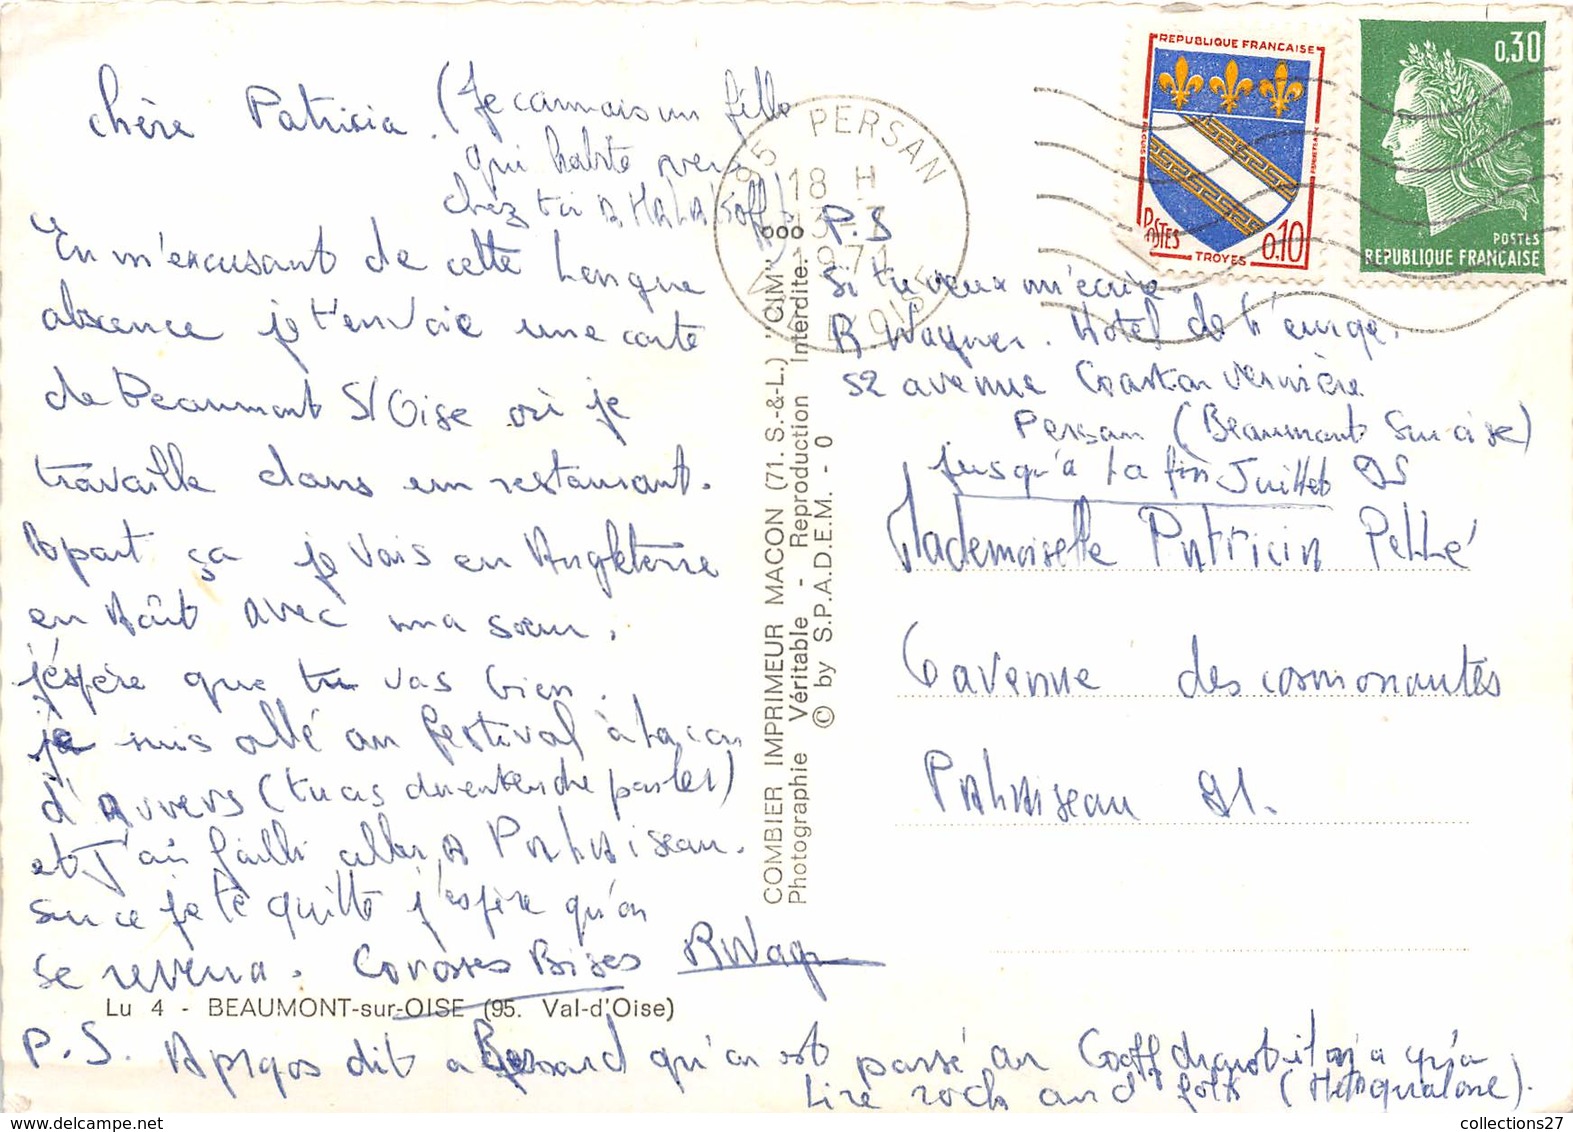 Chère Patricia. (Je connais un fille
qui habite
chez toi
En m'excusant de cette longue
absence je t'envoie une carte
de Beaumont S/Oise où je
travaille dans un restaurant.
Apart ça je vais en Angleterre
en Août avec ma sœur.
j'espère que tu vas bien.
je suis allé au festival
d'Auvers (tu as du entendre parler)
et J'ai failli aller A Palaiseau.
sur ce je te quitte j'espère qu'on
se reverra. Grosses Bises RWag
Lu 4 - BEAUMONT-sur-OISE (95. Val-d'Oise)
P.S. Apropos dit a Bernard qu'on est passé au Golf Drouot il n'y a qu'a
Lire rock and folk
COMBIER IMPRIMEUR MACON (71. S.-&-L.) "CIM"
Photographie Véritable - Reproduction Interdite.
© by S.P.A.D.E.M. - 0
95 PERSAN
18 H
VAL D'OISE
REPUBLIQUE FRANCAISE
POSTES
0,10
TROYES
0,30
POSTES
REPUBLIQUE FRANÇAISE
P.S
Si tu veux m'écrire.
R Wagner. Hotel de
52 avenue Gaston Vermeire
Persan (Beaumont Sur oise)
jusqu'a la fin Juillet 95
Mademoiselle Patricia Pellé
6 avenue des cosmonautes
Palaiseau 91.
collections27